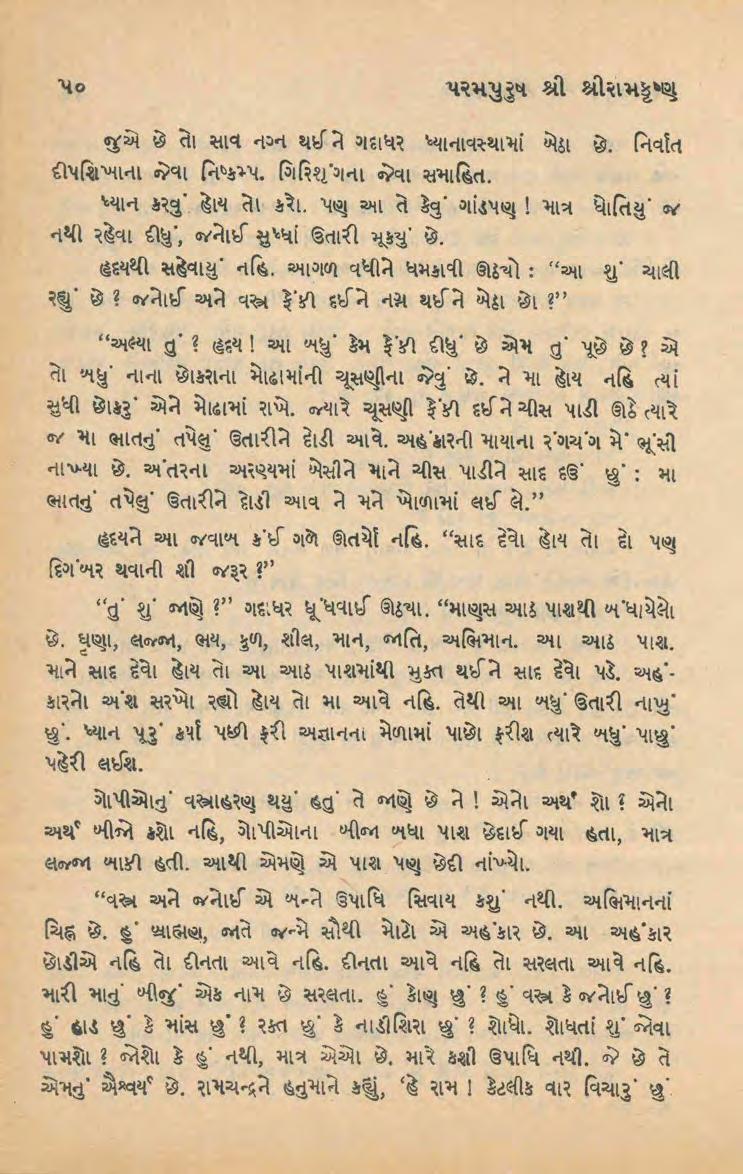 ૫૦ પરમપુરુષ શ્રી શ્રીરામકૃષ્ણ
જુએ છે તો સાવ નગ્ન થઈને ગદાધર ધ્યાનાવસ્થામાં બેઠા છે. નિર્વાત
દીપશિખાના જેવા નિષ્કમ્પ. ગિરિશૃંગના જેવા સમાહિત.
ધ્યાન કરવું હોય તો કરો. પણ આ તે કેવું ગાંડપણ ! માત્ર ધોતિયું જ
નથી રહેવા દીધું, જનોઈ સુધ્ધાં ઉતારી મૂક્યું છે.
હૃદયથી સહેવાયું નહિ. આગળ વધીને ધમકાવી ઊઠ્યો : “આ શું ચાલી
રહ્યું છે ? જનોઈ અને વસ્ત્ર ફેંકી દઈને નગ્ન થઈને બેઠા છો ?”
“અલ્યા તું ? હૃદય ! આ બધું કેમ ફેંકી દીધું છે એમ તું પૂછે છે ? એ
તો બધું નાના છોકરાના મોઢામાંની ચૂસણીના જેવું છે. ને મા હોય નહિ ત્યાં
સુધી છોકરું એને મોઢામાં રાખે. જ્યારે ચૂસણી ફેંકી દઈને ચીસ પાડી ઊઠે ત્યારે
જ મા ભાતનું તપેલું ઉતારીને દોડી આવે. અહંકારની માયાના રંગચંગ મેં ભૂંસી
નાખ્યા છે. અંતરના અરણ્યમાં બેસીને માને ચીસ પાડીને સાદ દઉં છું : મા
ભાતનું તપેલું ઉતારીને દોડી આવ ને મને ખોળામાં લઈ લે.”
હૃદયને આ જવાબ કંઈ ગળે ઊતર્યો નહિ. “સાદ દેવો હોય તો દો પણ
દિગંબર થવાની શી જરૂર ?”
“તું શું જાણે ?” ગદાધર ધૂંધવાઈ ઊઠયા. “માણસ આઠ પાશથી બંધાયેલો
છે. ઘૃણા, લજ્જા, ભય, કુળ, શીલ, માન, જાતિ, અભિમાન. આ આઠ પાશ.
માને સાદ દેવો હોય તો આ આઠ પાશમાંથી મુક્ત થઈને સાદ દેવો પડે. અહં-
કારનો અંશ સરખો રહ્યો હોય તો મા આવે નહિ. તેથી આ બધું ઉતારી નાખું
છું. ધ્યાન પૂરું કર્યા પછી ફરી અજ્ઞાનના મેળામાં પાછો ફરીશ ત્યારે બધું પાછું
પહેરી લઈશ.
ગોપીઓનું વસ્ત્રાહરણ થયું હતું તે જાણે છે ને ! એનો અર્થ શો ? એનો
અર્થ બીજો કશો નહિ, ગોપીઓના બીજા બધા પાશ છેદાઈ ગયા હતા, માત્ર
લજ્જા બાકી હતી. આથી એમણે એ પાશ પણ છેદી નાંખ્યો.
“વસ્ત્ર અને જનોઈ એ બન્ને ઉપાધિ સિવાય કશું નથી. અભિમાનનાં
ચિહ્ન છે. હું બ્રાહ્મણ, જાતે જન્મે સૌથી મોટો એ અહંકાર છે. આ અહંકાર
છોડીએ નહિ તો દીનતા આવે નહિ. દીનતા આવે નહિ તો સરલતા આવે નહિ.
મારી માનું બીજું એક નામ છે સરલતા. હું કોણ છું ? હું વસ્ત્ર કે જનોઈ છું ?
હું હાડ છું કે માંસ છું ? રક્ત છું કે નાડીશિરા છું ? શોધો. શોધતાં શું જોવા
પામશો ? જોશો કે હું નથી, માત્ર એઓ છે. મારે કશી ઉપાધિ નથી. જે છે તે
એમનું ઐશ્વર્ય છે. રામચન્દ્રને હનુમાને કહ્યું, ‘હે રામ ! કેટલીક વાર વિચારું છું